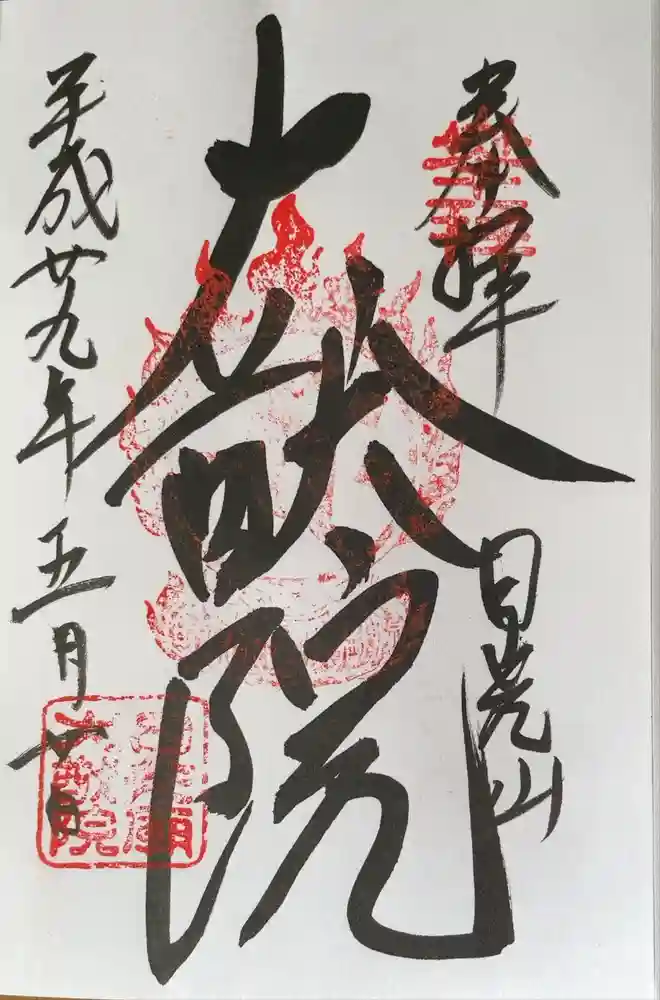 奉拝
日光山
大猷院
平成廿九年五月廿日
大猷院